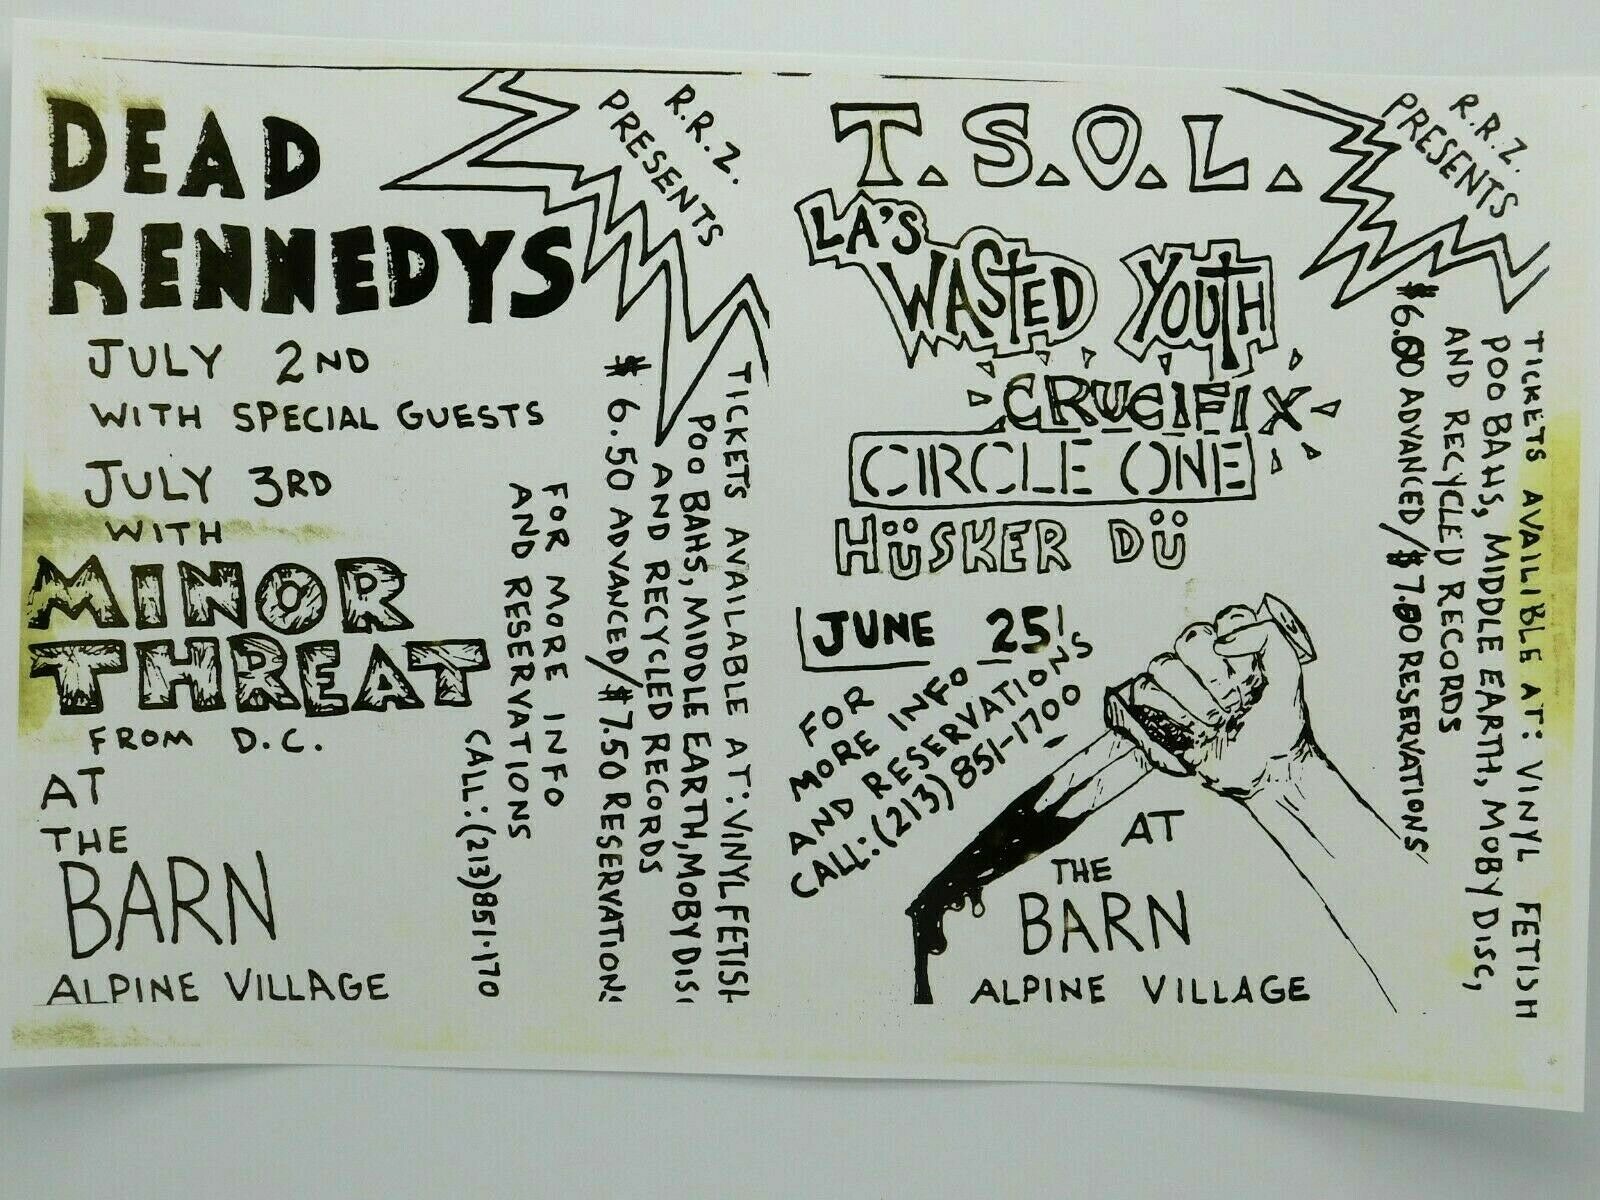 DEAD
KENNEDYS
JULY 2ND
WITH SPECIAL GUESTS
JULY 3RD
WITH
MINOR
THREAT
FROM D.C.
AT
THE
BARN
ALPINE VILLAGE
R.R.Z.
PRESENTS
TICKETS AVAILABLE AT: VINYL FETISH
POO BAHS, MIDDLE EARTH, MOBY DISC
AND RECYCLED RECORDS
$6.50 ADVANCED/$7.50 RESERVATION
FOR MORE INFO
AND RESERVATIONS
CALL: (213) 851-170
T.S.O.L.
LA'S
WASTED YOUTH
CRUCIFIX
CIRCLE ONE
HÜSKER DÜ
JUNE 25!
FOR
MORE INFO
AND RESERVATIONS
CALL: (213) 851-1700
AT
THE
BARN
ALPINE VILLAGE
R.R.Z.
PRESENTS
TICKETS AVAILIBLE AT: VINYL FETISH
POO BAHS, MIDDLE EARTH, MOBY DISC,
AND RECYCLED RECORDS
$6.00 ADVANCED/$7.00 RESERVATIONS